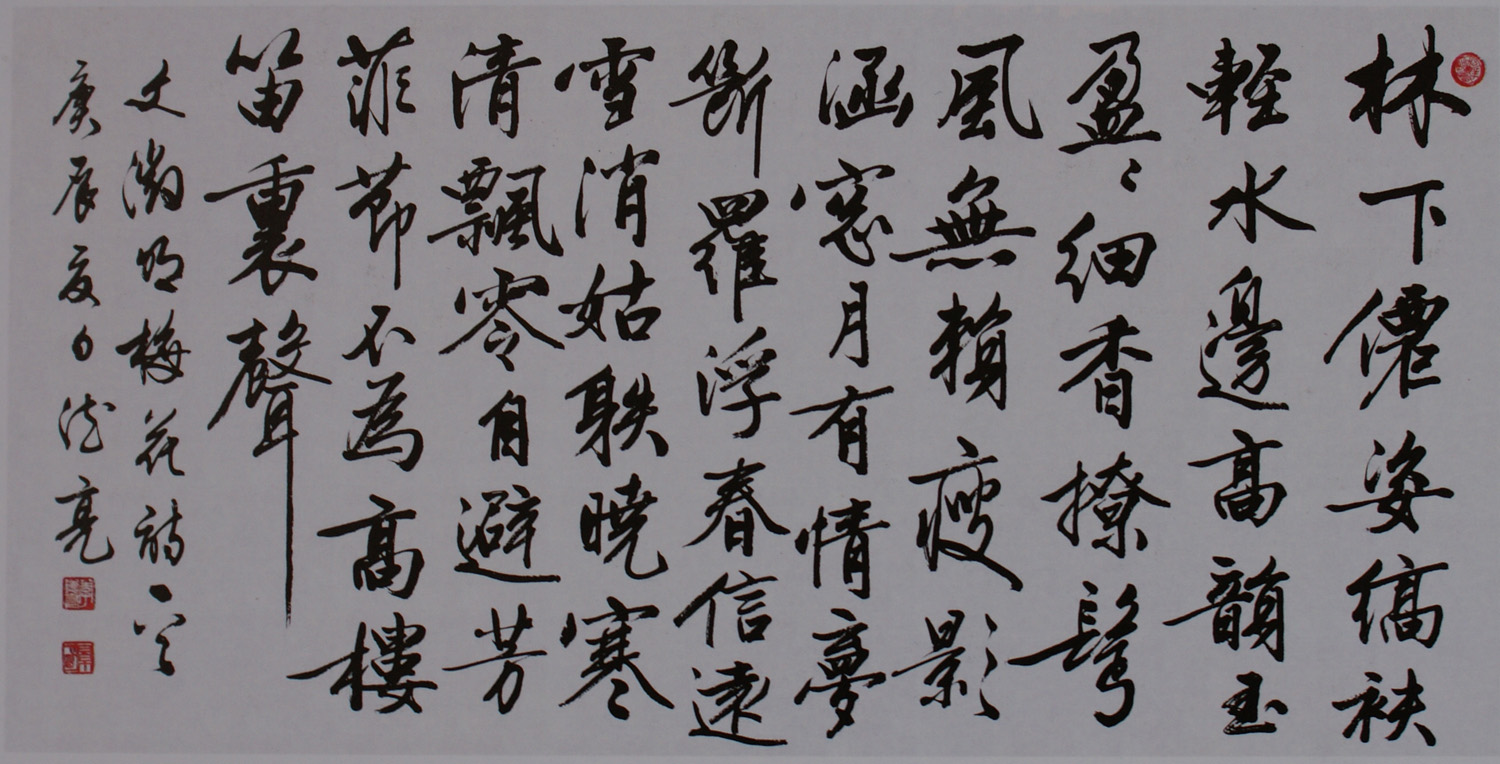 林下僊姿縞袂
輕水邊高韻玉
盈〻細香撩鬓
風無賴瘦影
涵窓月有情夢
斷羅浮春信遠
雪消姑䠶曉寒
清飄零自避芳
菲節不為高樓
笛裏聲
文徵明梅花詩一首
庚辰夏日 亮